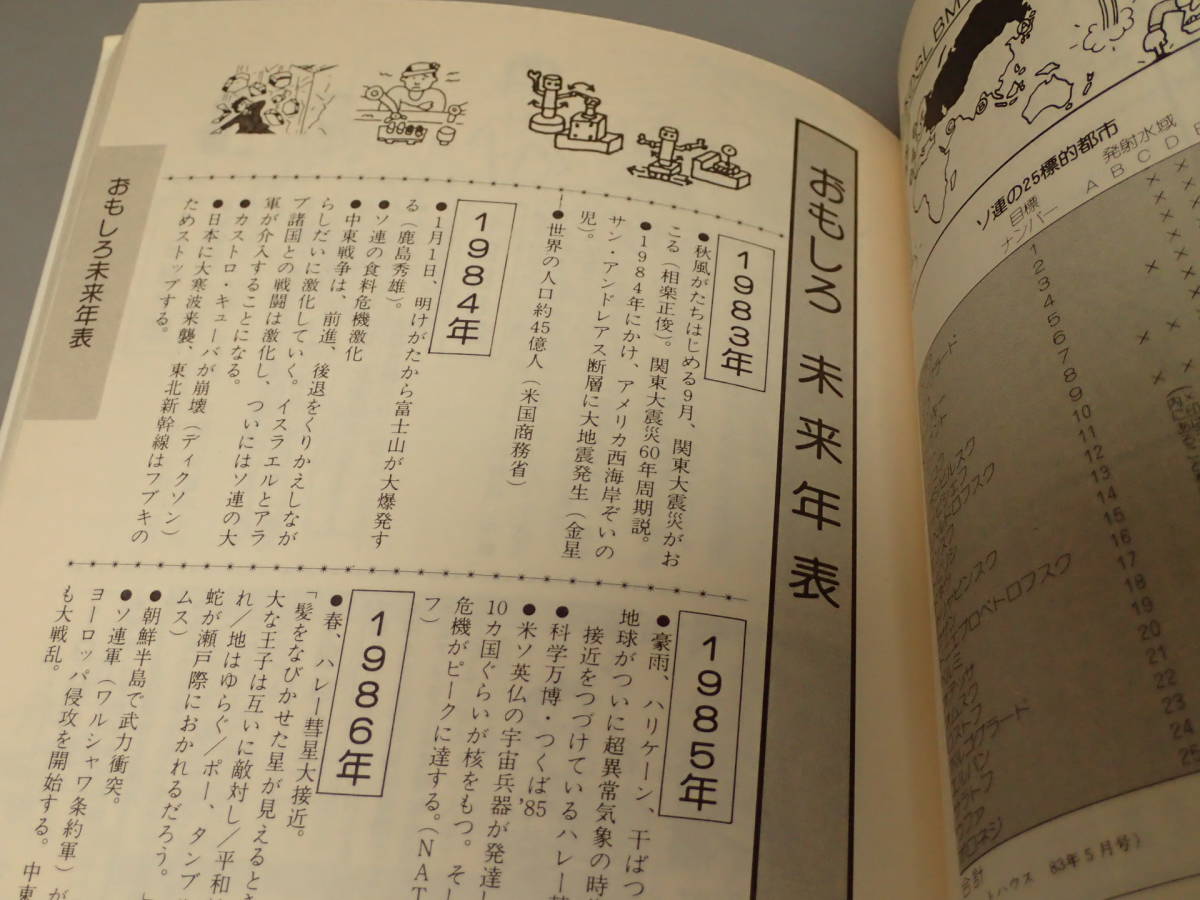 おもしろ 未来年表
1983年
●秋風がたちはじめる9月、関東大震災がお
こる(相楽正俊)。関東大震災60年周期説。
●1984年にかけ、アメリカ西海岸ぞいの
サン・アンドレアス断層に大地震発生(金星
児)。
●世界の人口約45億人(米国商務省)
1984年
●1月1日、明けがたから富士山が大爆発す
る(鹿島秀雄)。
●ソ連の食料危機激化
●中東戦争は、前進、後退をくりかえしなが
らしだいに激化していく。イスラエルとアラ
ブ諸国との戦闘は激化し、ついにはソ連の大
軍が介入することになる。
●カストロ・キューバが崩壊(ディクソン)
●日本に大寒波来襲、東北新幹線はフブキの
ためストップする。
1985年
●豪雨、ハリケーン、干ばつ
地球がついに超異常気象の時
接近をつづけているハレー
●科学万博・つくば'85
●米ソ英仏の宇宙兵器が発達し
10カ国ぐらいが核をもつ。そ
危機がピークに達する。(NAT
フ)
1986年
●春、ハレー彗星大接近。
「髪をなびかせた星が見えるとき
大な王子は互いに敵対し/平和
れ/地はゆらぐ/ポー、タンブ
蛇が瀬戸際におかれるだろう。
ムス)
●朝鮮半島で武力衝突。
●ソ連軍(ワルシャワ条約軍)が
ヨーロッパ侵攻を開始する。中東
も大戦乱。
おもしろ未来年表
SLBM
ソ連の25標的都市
目標
ナンバー
発射水域
A B C D
1
2
3
4
5
6
7
8
9
10
11
12
13
14
15
16
17
18
19
20
21
22
23
24
25
合計
トハウス 83年5月号)